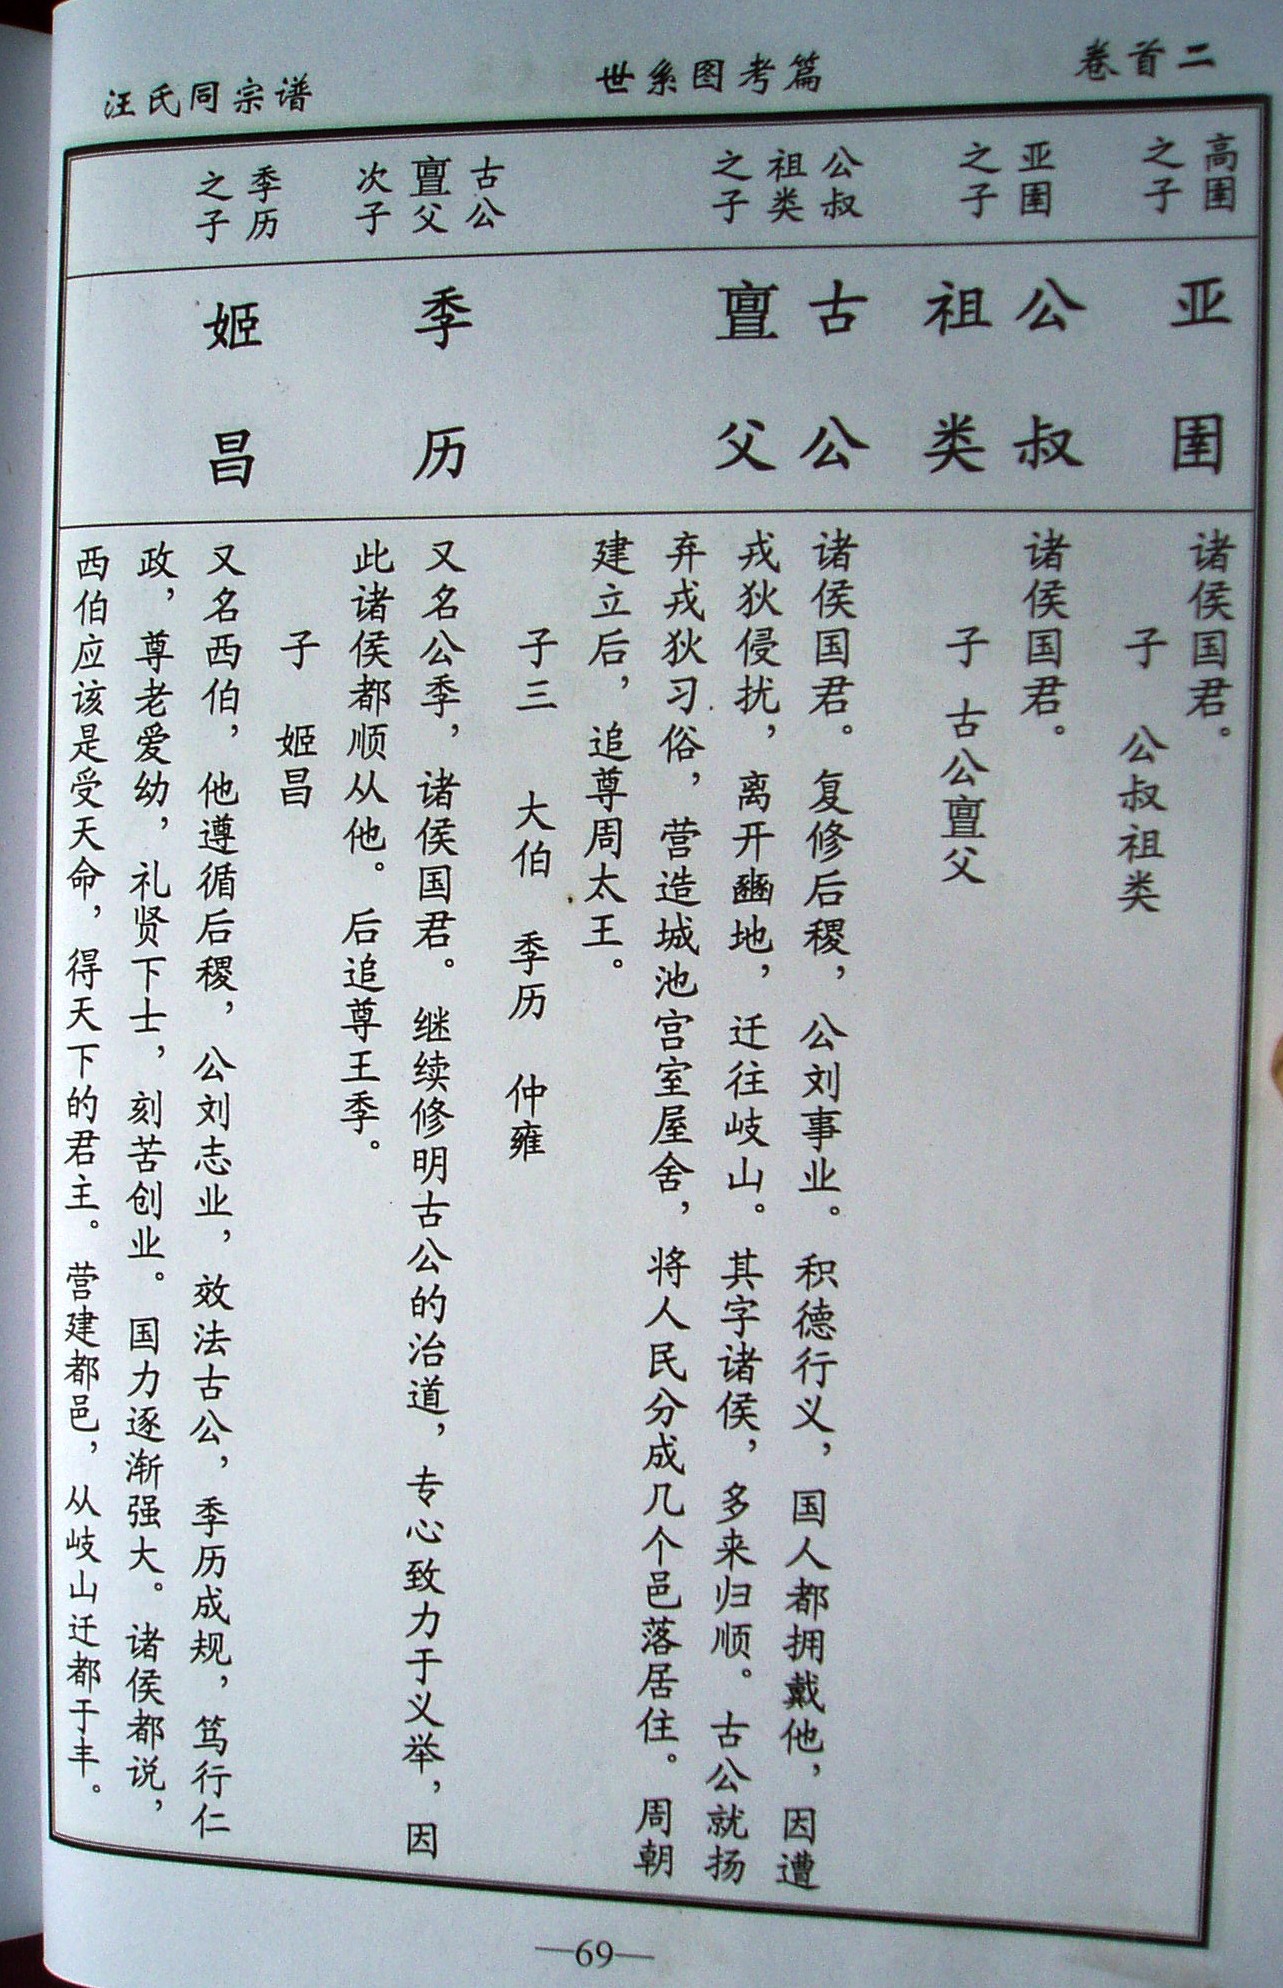 卷首二
世系图考篇
汪氏同宗谱
高圉
之子
亚圉
诸侯国君。
子　公叔祖类
亚圉
之子
公叔
祖类
诸侯国君。
子　古公亶父
公叔
祖类
之子
古公
亶父
诸侯国君。复修后稷，公刘事业。积德行义，国人都拥戴他，因遭
戎狄侵扰，离开豳地，迁往岐山。其字诸侯，多来归顺。古公就扬
弃戎狄习俗，营造城池宫室屋舍，将人民分成几个邑落居住。周朝
建立后，追尊周太王。
子三　大伯　季历　仲雍
古公
亶父
次子
季历
又名公季，诸侯国君。继续修明古公的治道，专心致力于义举，因
此诸侯都顺从他。后追尊王季。
子　姬昌
季历
之子
姬昌
又名西伯，他遵循后稷，公刘志业，效法古公，季历成规，笃行仁
政，尊老爱幼，礼贤下士，刻苦创业。国力逐渐强大。诸侯都说，
西伯应该是受天命，得天下的君主。营建都邑，从岐山迁都于丰。
—69—